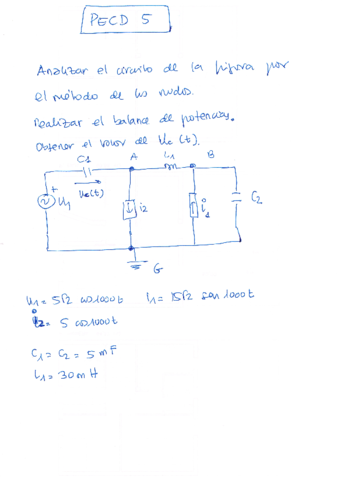 PECD 5
Analizar el circuito de la figura por
el método de los nudos.
Realizar el balance de potencias.
Obtener el valor de Uc (t).
C1 A L1 B
+ Uc(t)
U1 i2 i1 C2
G
U1 = 5√2 cos 1000t i1 = 15√2 sen 1000t
i2 = 5 cos 1000t
C1 = C2 = 5 mF
L1 = 30 mH